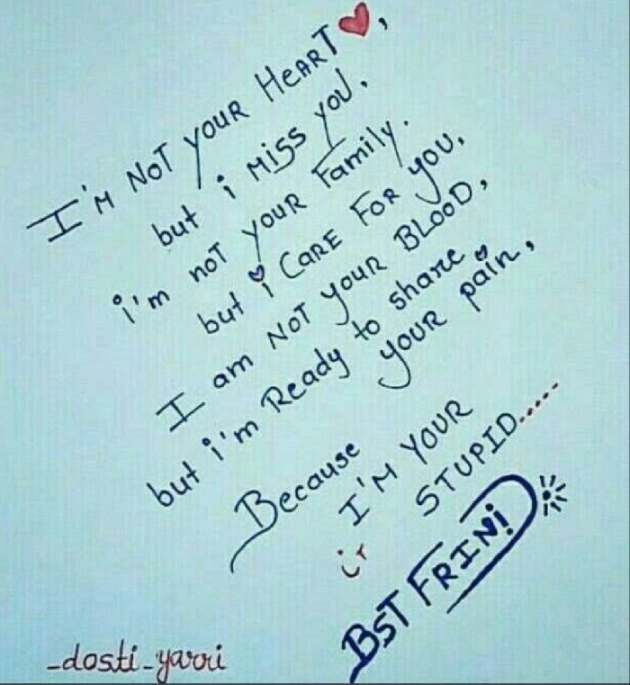 I'M NOT YOUR HEART ❤,
but i MISS YOU.
i'm noT YOUR Family.
but i CARE FOR YOU,
I am NOT YOUR BLOOD,
but i'm READY to share
YOUR pain,
Because
I'M YOUR
STUPID.....
BST FRIND
_dosti_yarri